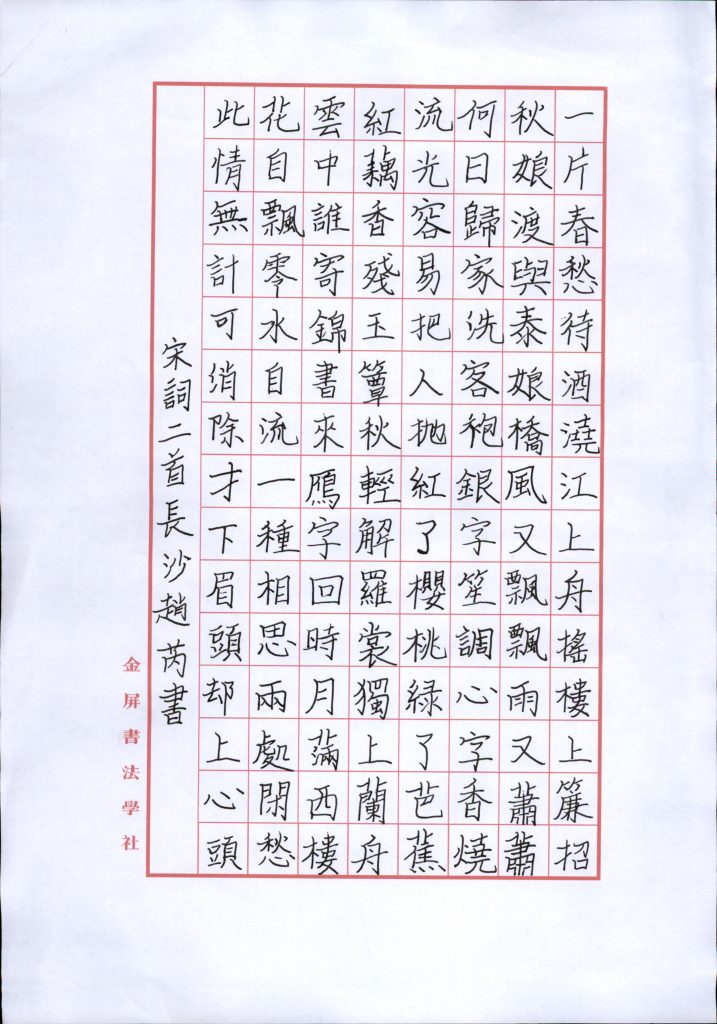 一片春愁待酒澆江上舟搖樓上簾招
秋娘渡與泰娘橋風又飄飄雨又蕭蕭
何日歸家洗客袍銀字笙調心字香燒
流光容易把人拋紅了櫻桃綠了芭蕉
紅藕香殘玉簟秋輕解羅裳獨上蘭舟
雲中誰寄錦書來鴈字回時月滿西樓
花自飄零水自流一種相思兩處閑愁
此情無計可消除才下眉頭却上心頭
宋詞二首長沙趙芮書
金屏書法學社